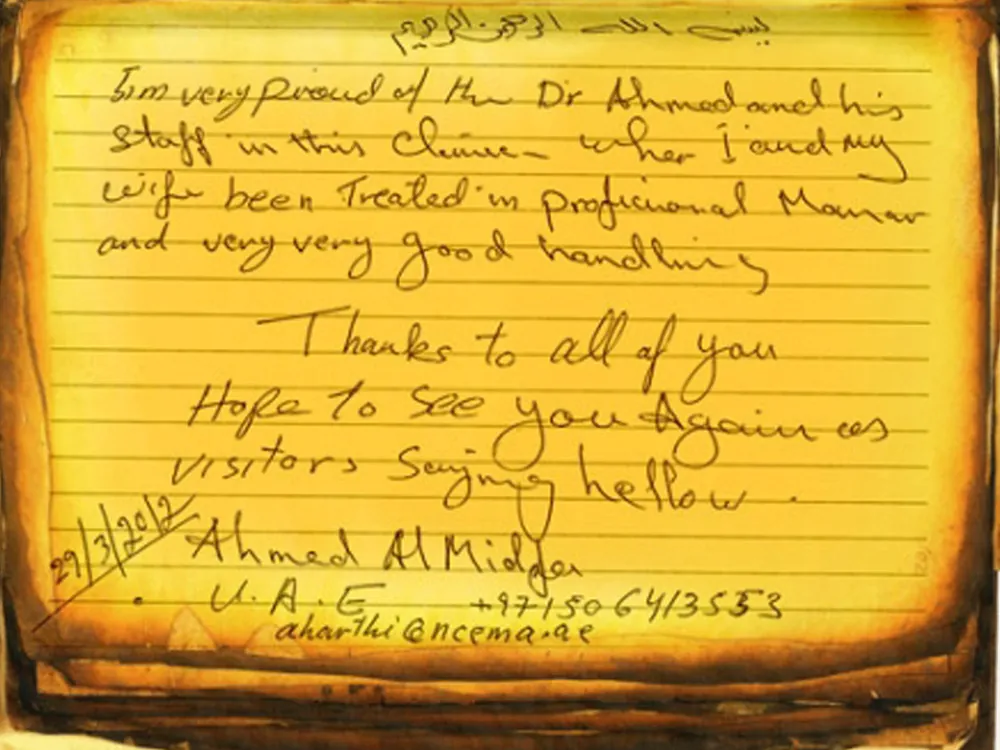 بسم الله الرحمن الرحيم
I'm very proud of the Dr Ahmed and his
staff in this Clinic wher I and my
wife been Treated in proficional Manar
and very very good handling
Thanks to all of you
Hope to see you Again as
visitors saying hellow .
29/3/2012
Ahmed Al Midfa
U.A.E +971506413553
aharthi@ncema.ae